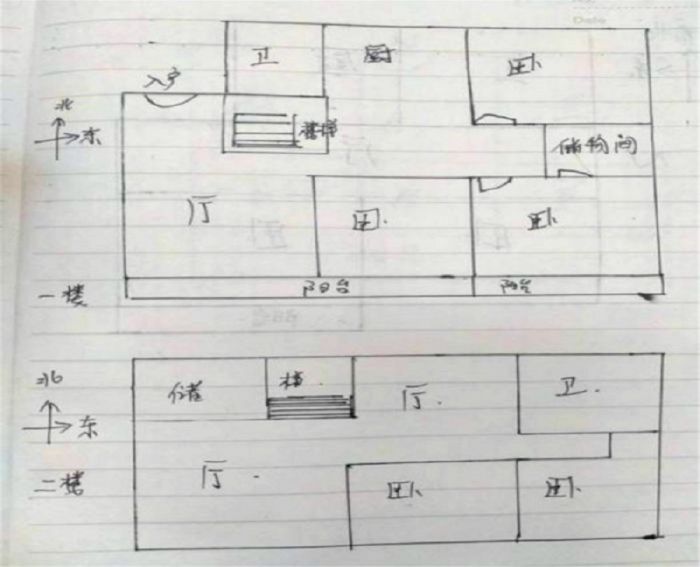 Date
卫
厨
卧
入户
北
东
楼梯
储物间
厅
卧
卧
一楼
阳台
阳台
北
储
梯
厅
卫
东
二楼
厅
卧
卧